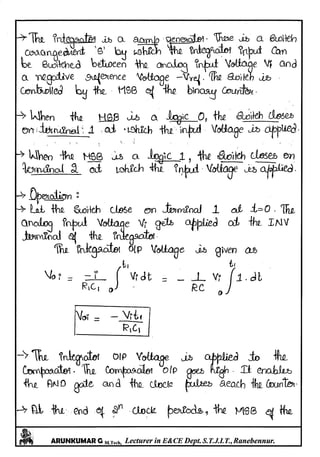 → The integrator is a ramp generator. There is a switch
arrangement 'S' by which the integrator input can
be switched between the analog input voltage Vi and
a negative reference voltage -Vref. The switch is
controlled by the MSB of the binary counter.
→ When the MSB is a logic 0, the switch closes
on terminal 1 at which the input voltage is applied.
→ When the MSB is a logic 1, the switch closes on
terminal 2 at which the input voltage is applied.
→ Operation :
→ Let the switch close on terminal 1 at t=0. The
analog input voltage Vi gets applied at the INV
terminal of the integrator.
The integrator O/P voltage is given as
Voi = -1/R1C1 ∫₀^t1 Vi dt = -1/RC Vi ∫₀^t1 1.dt
Voi = -Vit1/R1C1
→ The integrator O/P voltage is applied to the
comparator. The comparator O/P goes high. It enables
the AND gate and the clock pulses reach the counter.
→ At the end of 2ⁿ clock periods, the MSB of the
ARUNKUMAR G M.Tech, Lecturer in E&CE Dept. S.T.J.I.T., Ranebennur.